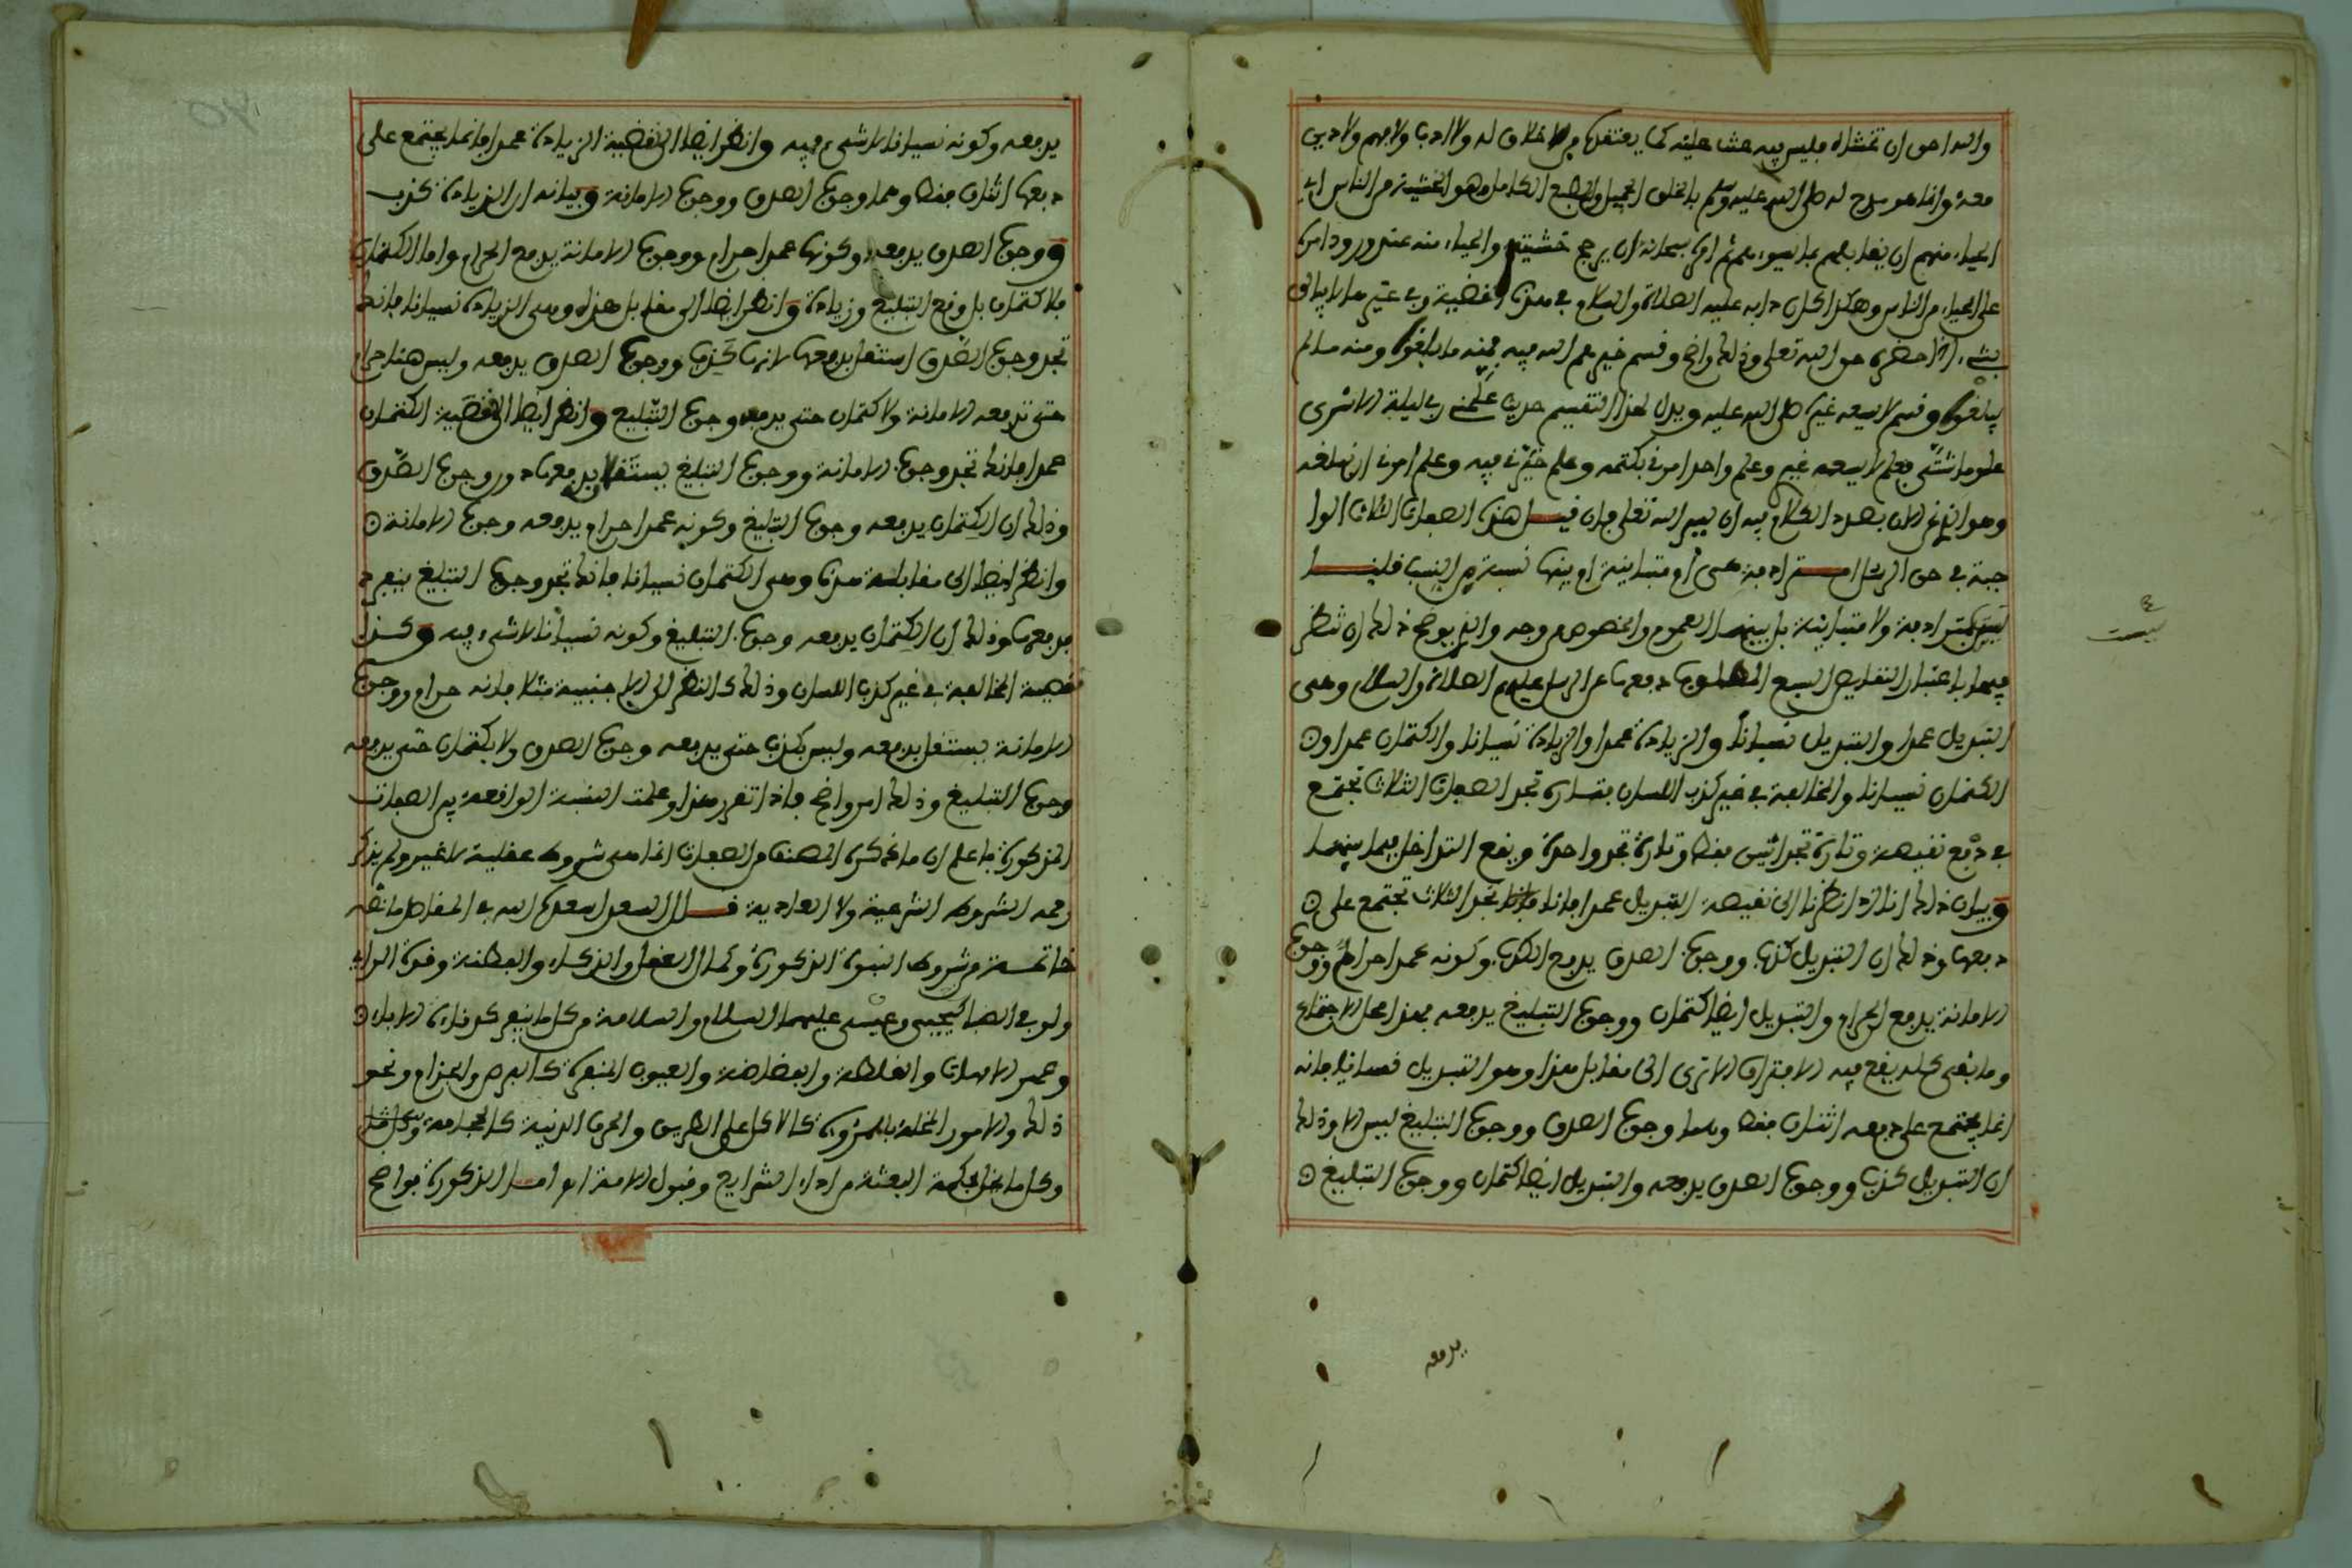 والله احق ان تخشاه فليس فيه عتب عليه كما يعتقده من لا خلاق له ولا ادب ولا فهم ولا دين
معه وانما هو مدح له صلى الله عليه وسلم بالخلق الجميل والطبع الكامل وهو الخشية من الناس اي
الحياء منهم ان يقابلهم بما يسوءهم ثم امره سبحانه ان يرجح خشيته والحياء منه عند ورود امره
على الحياء من الناس وهكذا كان دابه عليه الصلاة والسلام في هذه القضية وفي غيرها لا يبالي
بشيء اذا حضره حق الله تعلى وذلك واضح وقسم خيرهم الله فيه فمنه ما بلغوه ومنه ما لم
يبلغوه وقسم لا يسعه غيره صلى الله عليه ويدل لهذا التقسيم حديث علمني ربي ليلة الاسرى
علوما شتى فعلم لا يسعه غيري وعلم واحد امرني بكتمه وعلم خيرني فيه وعلم امرني ان ابلغه
وهو الذي نحن الان بصدد الكلام فيه ان يسر الله تعلى فان قيل هذه الصفات الثلاث الوا
جبة في حق الرسل امترادفة هي أم متباينة ام بينها نسبة من النسب قلنا
ليس بمترادفة ولا متباينة بل بينهما العموم والخصوص من وجه والذي يوضح ذلك ان تنظر
فيها باعتبار النقايص السبع المطلوب دفعها عن الرسل عليهم الصلاة والسلام وهي
التبديل عمدا والتبديل نسيانا والزيادة عمدا والزيادة نسيانا والكتمان عمدا و⊙
الكتمان نسيانا والمخالفة في غير كذب اللسان فتارة تجد الصفات الثلاث تجتمع
في دفع نقيصة وتارة تجد اثنين فقط وتارة تجد واحدة ويقع التداخل فيما بينهما
وبيان ذلك انا اذا نظرنا الى نقيصة التبديل عمدا فانا نجد الثلاث تجتمع على ⊙
دفعها وذلك ان التبديل كذب ووجوب الصدق يدفع الكذب وكونه عمدا حرام ووجوب
الامانة يدفع الحرام والتبديل ايضا كتمان ووجوب التبليغ يدفعه فهذا محل الاجتماع
وما بقي كله يقع فيه الافتراق الا ترى الى مقابل هذا وهو التبديل نسيانا فانه
انما يجتمع على دفعه اثنان فقط وهما وجوب الصدق ووجوب التبليغ ليس الا وذلك
ان التبديل كذب ووجوب الصدق يدفعه والتبديل ايضا كتمان ووجوب التبليغ ⊙
يدفعه
ليست
يدفعه وكونه نسيانا لا شيء فيه وانظر ايضا الى قضية الزيادة عمدا فانما يجتمع على
دفعها اثنان فقط وهما وجوب الصدق ووجوب الامانة وبيانه ان الزيادة كذب
ووجوب الصدق يدفعه وكونها عمدا حرام ووجوب الامانة يدفع الحرام واما الكتمان
فلا كتمان بل وقع التبليغ وزيادة وانظر ايضا الى مقابل هذه وهي الزيادة نسيانا فانك
تجد وجوب الصدق استقل بدفعها لانها كذب ووجوب الصدق يدفعه وليس هنا حرام
حتى تدفعه الامانة ولا كتمان حتى يدفعه وجوب التبليغ وانظر ايضا الى قضية الكتمان
عمدا فانك تجد وجوب الامانة ووجوب التبليغ يستقلان بدفعها دون وجوب الصدق
وذلك ان الكتمان يدفعه وجوب التبليغ وكونه عمدا حرام يدفعه وجوب الامانة ⊙
وانظر ايضا الى مقابلة هذه وهي الكتمان نسيانا فانك تجد وجوب التبليغ ينفرد
بدفعها وذلك ان الكتمان يدفعه وجوب التبليغ وكونه نسيانا لا شيء فيه وكذا
نقيصة المخالفة في غير كذب اللسان وذلك كالنظر الى الاجنبية مثلا فانه حرام ووجوب
الامانة يستقل بدفعه وليس بكذب حتى يدفعه وجوب الصدق ولا بكتمان حتى يدفعه
وجوب التبليغ وذلك امر واضح فاذا تقرر هذا وعلمت النسبة الواقعة بين الصفات
المذكورة فاعلم ان ما ذكره المصنف من الصفات انما هي شروط عقلية لا غير ولم يذكر
رحمه الشروط الشرعية ولا العادية قال السعد اسعده الله في المقاصد ما نصه
خاتمة من شروط النبوة الذكورة وكمال العقل والذكاء والفطنة وقوة الراي
ولو في الصبا كيحيى وعيسى عليهما السلام والسلامة من كل ما ينفر كدناءة الاباء ⊙
وعهر الامهات والغلظة والفظاظة والعيوب المنفرة كالبرص والجذام ونحو
ذلك والامور المخلة بالمروءة كالاكل على الطريق والحرف الدنية كالحجامة وكل ما
وكل ما يخل بحكمة البعثة من اداء الشرايع وقبول الامة اه اما الذكورة فواضح